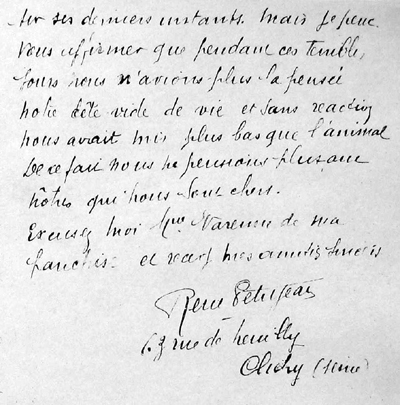 sur ses derniers instants. Mais je peux
vous affirmer que pendant ces terribles
jours nous n'avions plus la pensée
notre tête vide de vie et sans reaction
nous avait mis plus bas que l'animal
De ce fait nous ne pensions plus aux
nôtres qui nous sont chers.
Excusez moi Mme Varenne de ma
franchise et recevez mes amitiés sincères
René Petitjean
63 rue de Neuilly
Clichy (Seine)